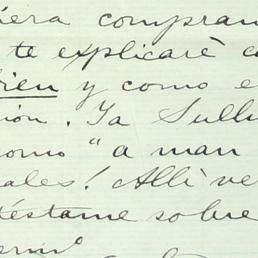 iera compran
te explicarè c
bien y como e
ión. Ya Sullu
como "a man
ales! Allì ve
téstame sobre